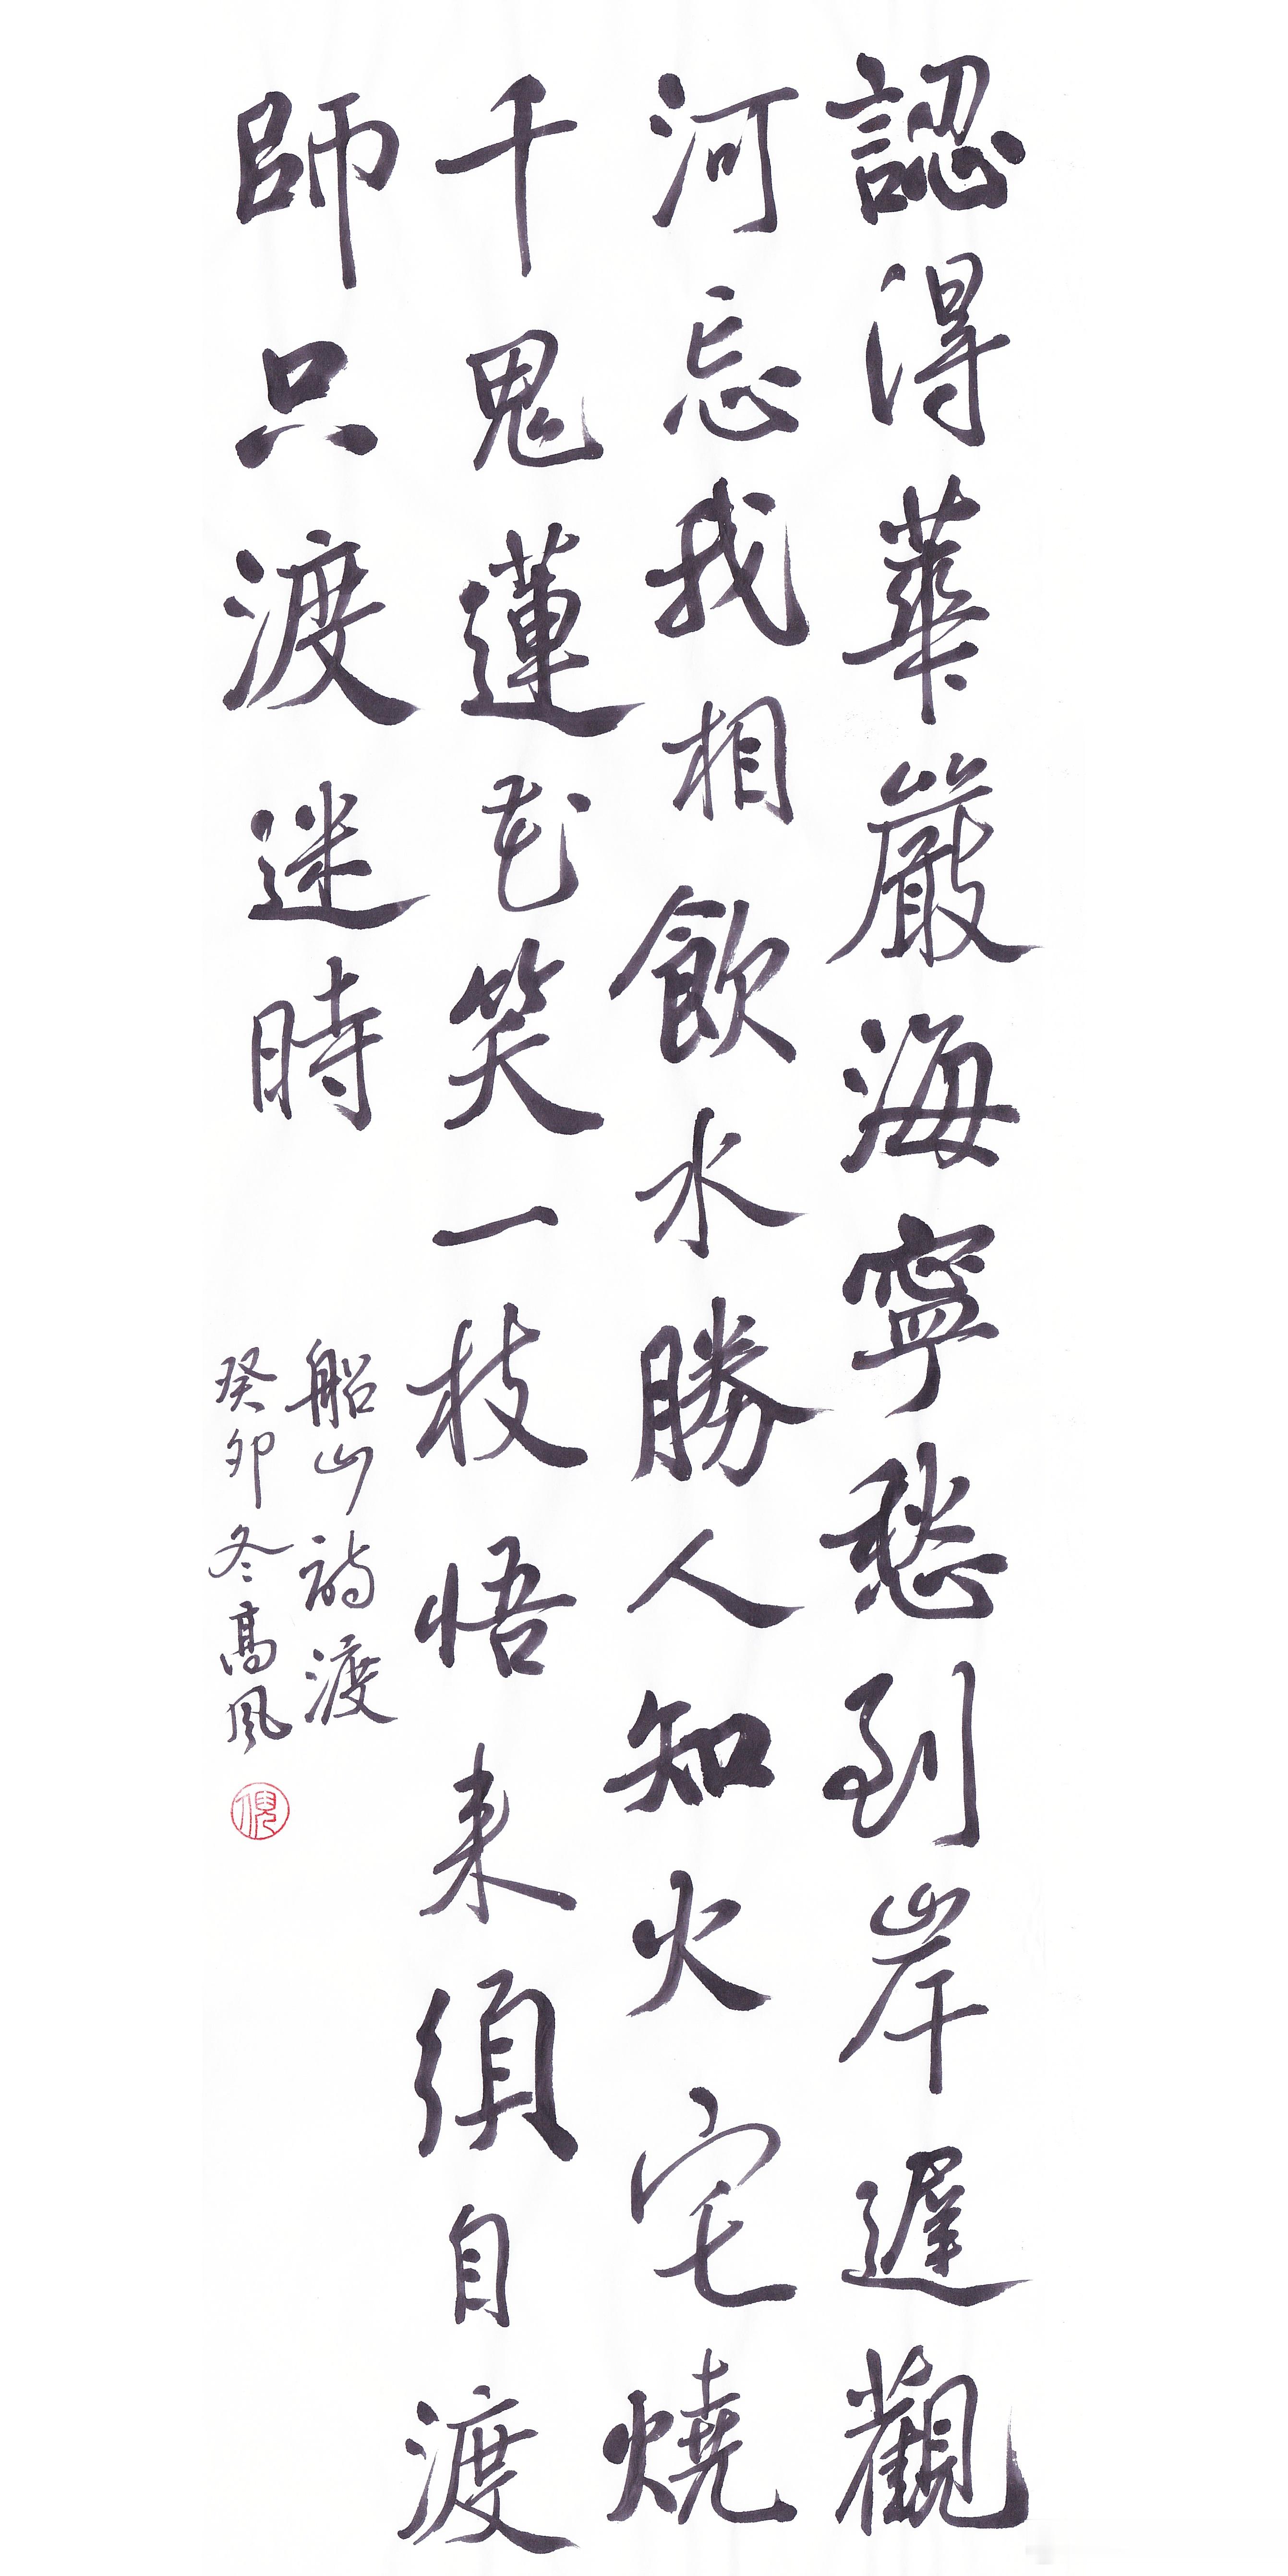 認得華嚴海寧愁到岸遲觀
河忘我相飲水勝人知火宅燒
千鬼蓮花笑一枝悟来須自渡
師只渡迷時
船山詩渡
癸卯冬高风
倪